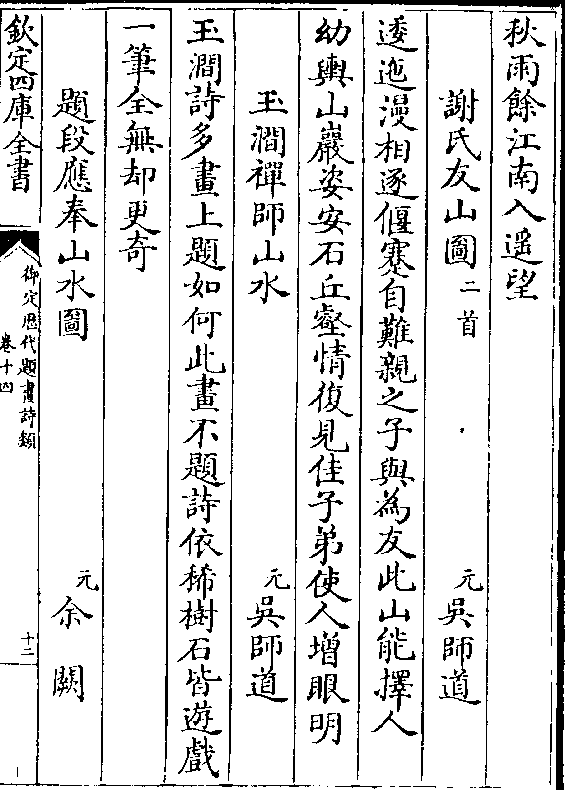 秋雨餘江南入遥望
謝氏友山圖二首　元吳師道
逶迤漫相逐偃蹇自難親之子與為友此山能擇人
幼輿山巖姿安石丘壑情復見佳子弟使人增眼明
玉澗禪師山水　元吳師道
玉澗詩多畫上題如何此畫不題詩依稀樹石皆遊戲
一筆全無却更奇
題段應奉山水圖　元余闕
欽定四庫全書
御定歷代題畫詩類
卷十四
十二